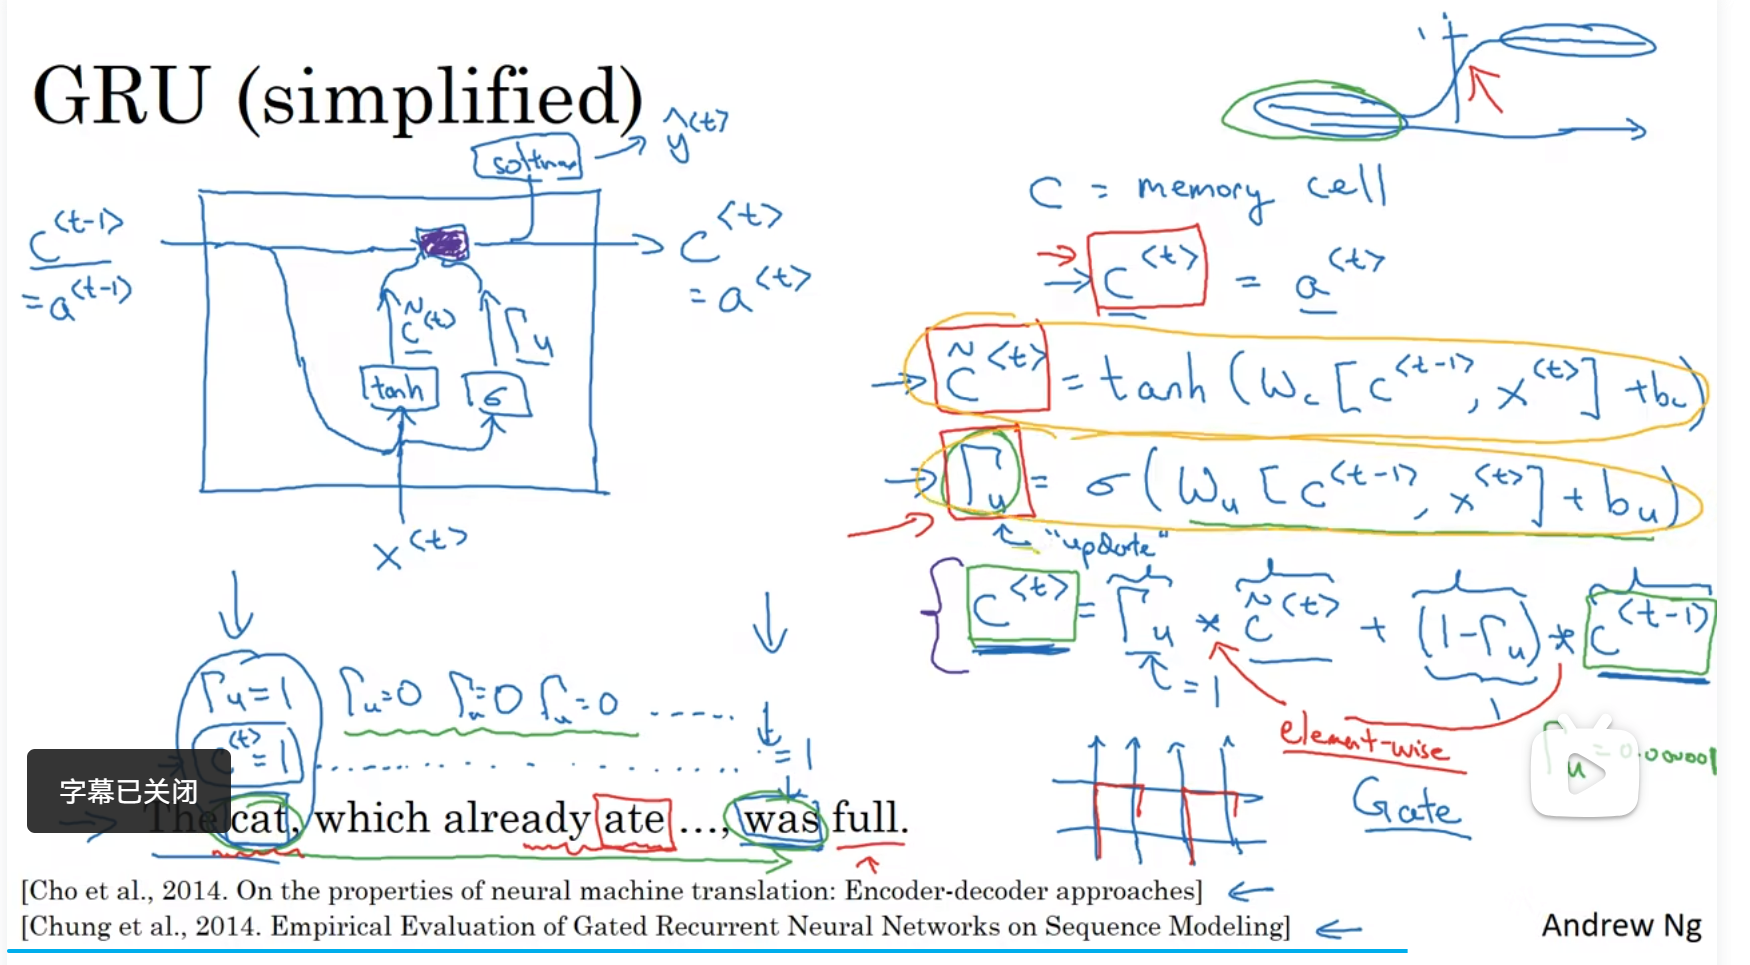 GRU (simplified)
softmax
ŷ<t>
c<t-1>
= a<t-1>
c<t>
= a<t>
c̃<t>
Γu
tanh
σ
x<t>
c = memory cell
c<t> = a<t>
c̃<t> = tanh (Wc [c<t-1>, x<t>] + bc)
Γu = σ (Wu [c<t-1>, x<t>] + bu)
"update"
c<t> = Γu * c̃<t> + (1-Γu) * c<t-1>
= 1
1
element-wise
Γu = 0.000001
Gate
Γu=1 Γu=0 Γu=0 Γu=0 ......
c<t>=1 ............ =1
字幕已关闭
The cat, which already ate ..., was full.
[Cho et al., 2014. On the properties of neural machine translation: Encoder-decoder approaches]
[Chung et al., 2014. Empirical Evaluation of Gated Recurrent Neural Networks on Sequence Modeling]
Andrew Ng